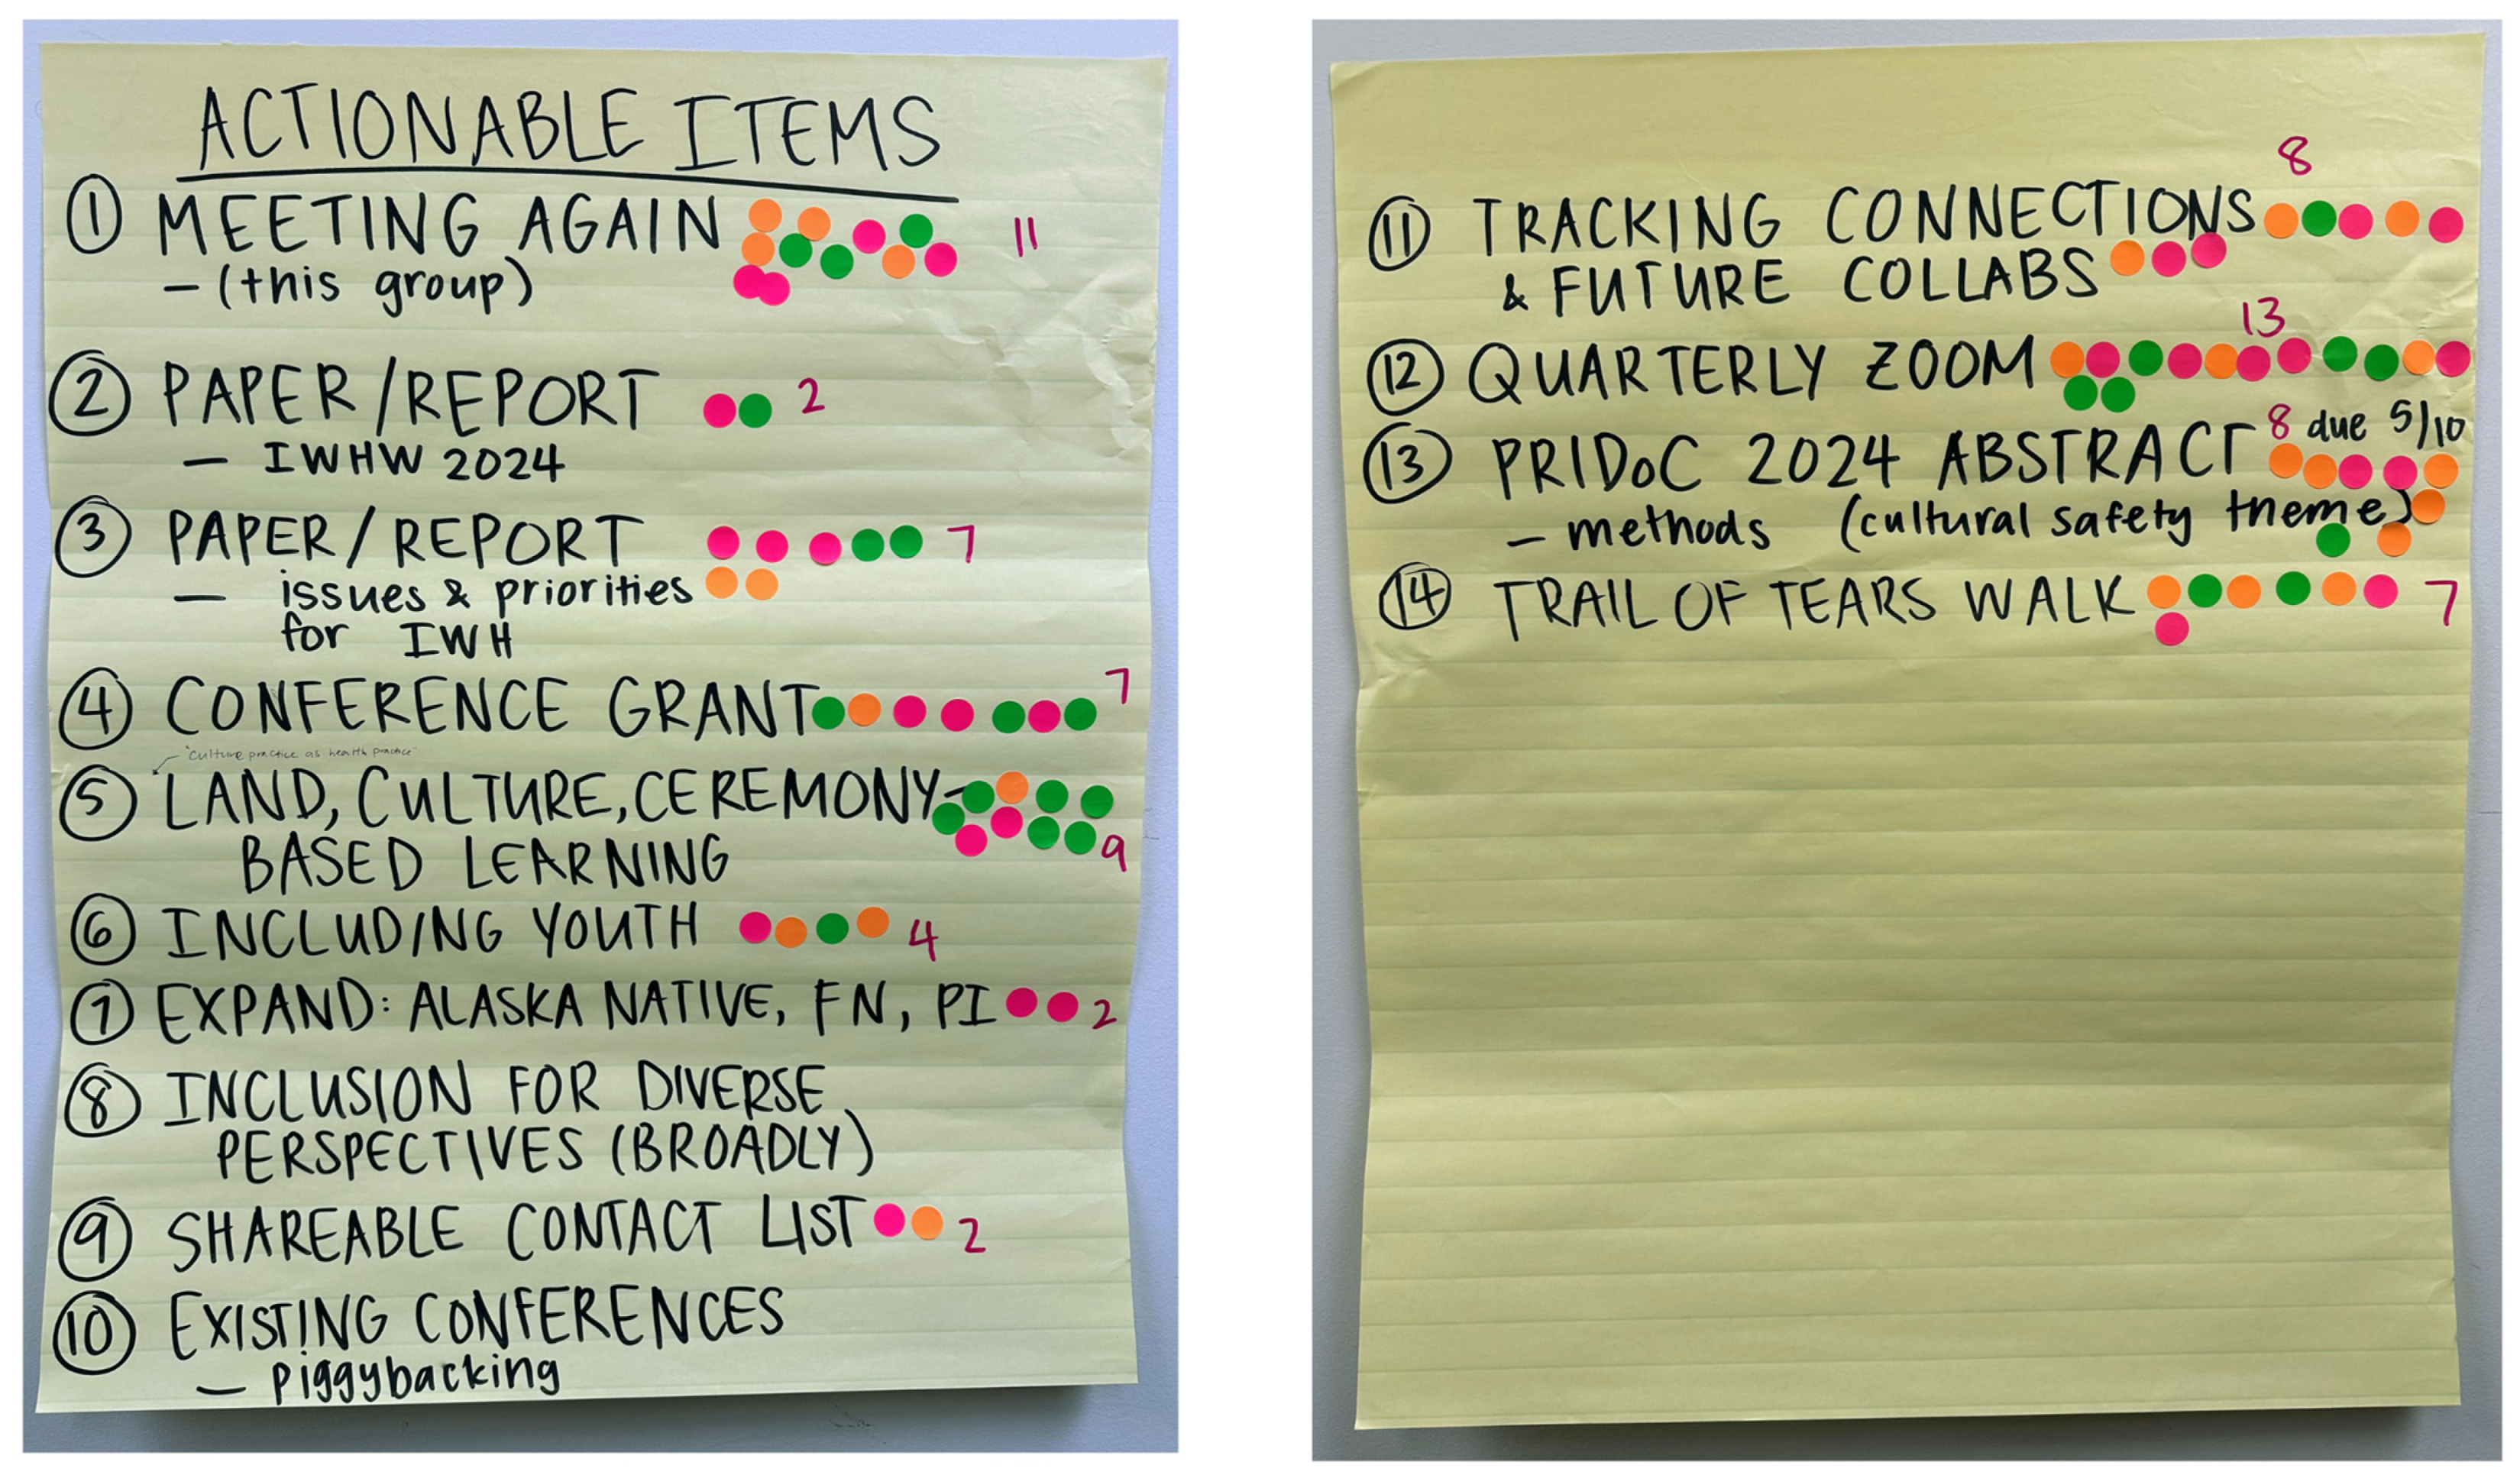 ACTIONABLE ITEMS
① MEETING AGAIN 11
- (this group)
② PAPER/REPORT 2
- IWHW 2024
③ PAPER/REPORT 7
- issues & priorities
for IWH
④ CONFERENCE GRANT 7
"Culture practice as health practice"
⑤ LAND, CULTURE, CEREMONY-
BASED LEARNING 9
⑥ INCLUDING YOUTH 4
⑦ EXPAND: ALASKA NATIVE, FN, PI 2
⑧ INCLUSION FOR DIVERSE
PERSPECTIVES (BROADLY)
⑨ SHAREABLE CONTACT LIST 2
⑩ EXISTING CONFERENCES
- piggybacking
8
⑪ TRACKING CONNECTIONS
& FUTURE COLLABS
13
⑫ QUARTERLY ZOOM
⑬ PRIDoC 2024 ABSTRACT 8 due 5/10
- methods (cultural safety theme)
⑭ TRAIL OF TEARS WALK 7